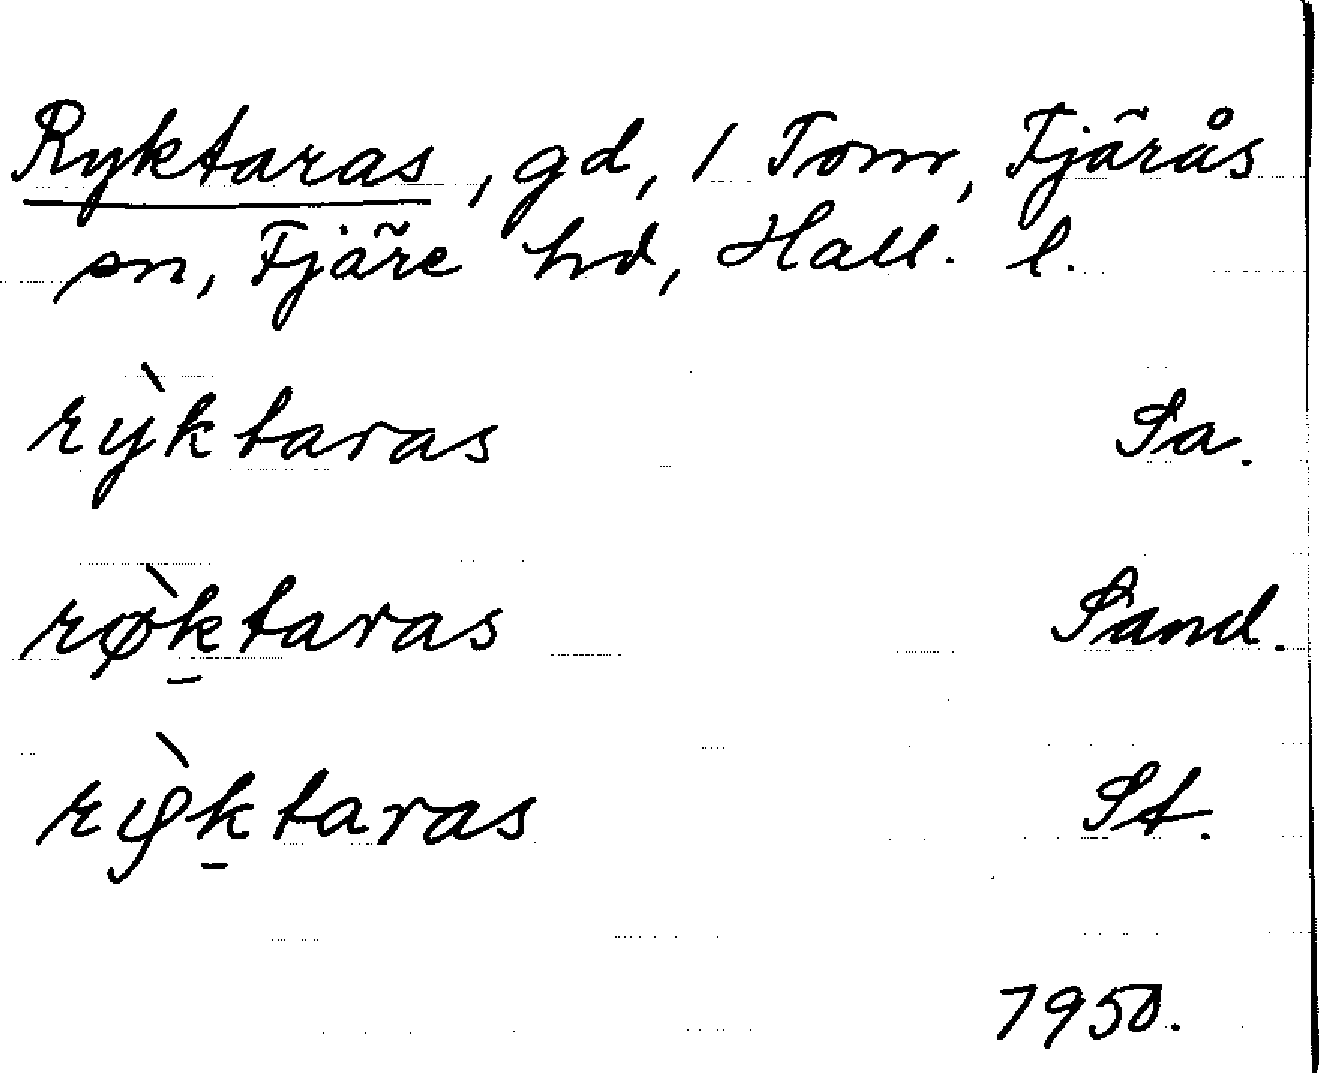 Ryktaras, gd, 1 Tom, Fjärås
sn, Fjäre hd, Hall. l.
rỳktaras Sa.
rø̀ḵtaras Sand.
rỳḵtaras St.
1950.